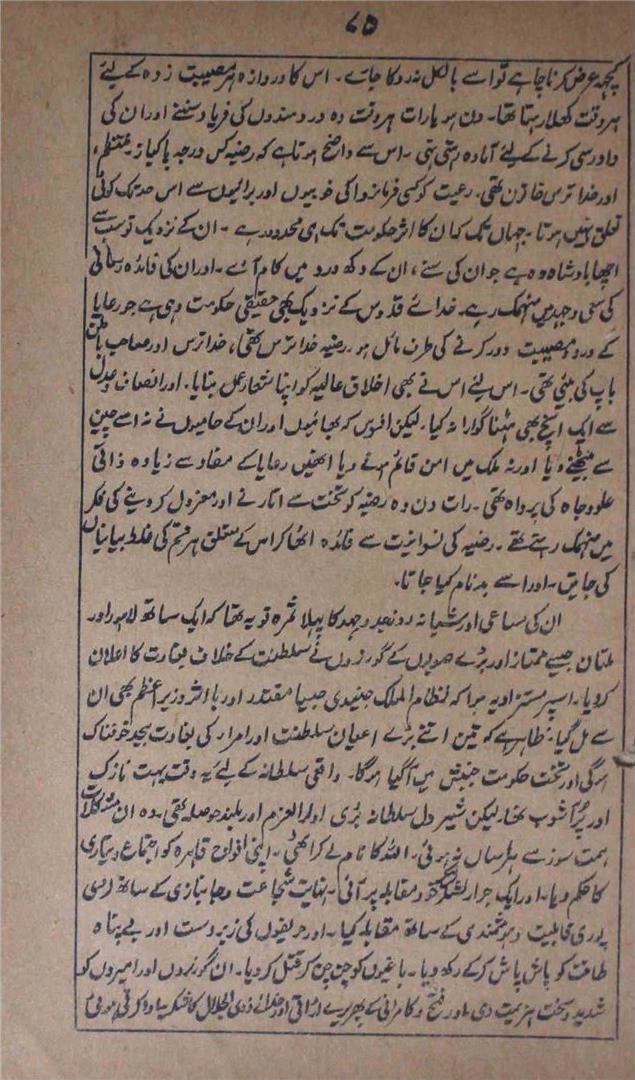 ۷۵
کچھ عرض کرنا چاہے تو اسے بالکل نہ روکا جائے۔ اس کا دروازہ ہر مصیبت زدہ کے لیے
ہر وقت کھلا رہتا تھا۔ دن ہو یا رات ہر وقت وہ دردمندوں کی فریاد سننے اور ان کی
دادرسی کرنے کے لیے آمادہ رہتی تھی۔ اس سے واضح ہوتا ہے کہ رضیہ کس درجہ پاکباز، منتظم،
اور خدا ترس خاتون تھی۔ رعیت کو کسی فرمانروا کی خوبیوں اور برائیوں سے اس حد تک کوئی
تعلق نہیں ہوتا۔ جہاں تک کہ ان کا اثر حکومت تک ہی محدود رہے۔ ان کے نزدیک تو سب سے
اچھا بادشاہ وہ ہے جو ان کی سنے، ان کے دکھ درد میں کام آئے۔ اور ان کی فائدہ رسانی
کی سعی و جہد میں منہمک رہے۔ خدائے قدوس کے نزدیک بھی حقیقی حکومت وہی ہے جو رعایا
کے درد و مصیبت دور کرنے کی طرف مائل ہو۔ رضیہ خدا ترس تھی، خدا ترس اور صاحب باطن
باپ کی بیٹی تھی۔ اس لئے اس نے بھی اخلاق عالیہ کو اپنا شعار عمل بنایا۔ اور انصاف و عدل
سے ایک انچ بھی ہٹنا گوارا نہ کیا۔ لیکن افسوس کہ بھائیوں اور ان کے حامیوں نے نہ اسے چین
سے بیٹھنے دیا اور نہ ملک میں امن قائم ہونے دیا انھیں رعایا کے مفاد سے زیادہ ذاتی
علو و جاہ کی پرواہ تھی۔ رات دن وہ رضیہ کو تخت سے اتارنے اور معزول کر دینے کی فکر
میں منہمک رہتے تھے۔ رضیہ کی نسوانیت سے فائدہ اٹھا کر اس کے متعلق ہر قسم کی غلط بیانیاں
کی جاتیں۔ اور اسے بدنام کیا جاتا۔
ان کی مساعی اور شبانہ روز جد و جہد کا پہلا ثمرہ تو یہ تھا کہ ایک ساتھ لاہور اور
ملتان جیسے ممتاز اور بڑے صوبوں کے گورنروں نے سلطنت کے خلاف بغاوت کا اعلان
کر دیا۔ اسپر مستزاد یہ ہوا کہ نظام الملک جنیدی جیسا مقتدر اور بااثر وزیر اعظم بھی ان
سے مل گیا۔ ظاہر ہے کہ تین اتنے بڑے اعیان سلطنت اور امراء کی بغاوت بیحد خوفناک
ہوگی اور تخت حکومت جنبش میں آگیا ہوگا۔ واقعی سلطانہ کے لیے یہ وقت بہت نازک
اور پُر آشوب تھا۔ لیکن شیر دل سلطانہ بڑی اولوالعزم اور بلند حوصلہ تھی۔ وہ ان مشکلات
ہمت سوز سے ہراساں نہ ہوئی۔ اللہ کا نام لے کر اٹھی۔ اپنی افواج قاہرہ کو اجتماع و تیاری
کا حکم دیا۔ اور ایک جرار لشکر مقابلہ پر آئی۔ نہایت شجاعت و جانبازی کے ساتھ لڑی
پوری قابلیت و ہوشمندی کے ساتھ مقابلہ کیا۔ اور حریفوں کی زبردست اور بے پناہ
طاقت کو پاش پاش کر کے رکھ دیا۔ باغیوں کو چن چن کر قتل کر دیا۔ ان گورنروں اور امیروں کو
شدید و سخت ہزیمت دی۔ اور فتح و کامرانی کے پھریرے اڑاتی اور خدائے ذوالجلال کا شکریہ ادا کرتی ہوئی